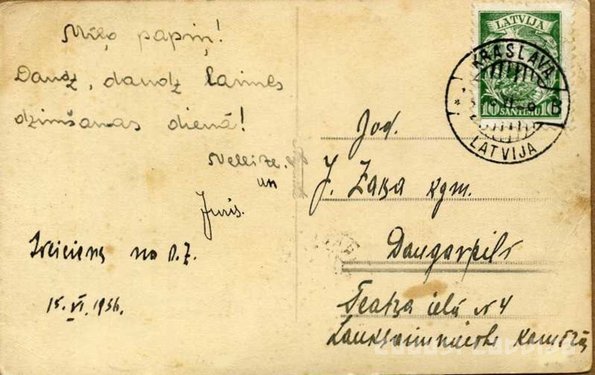 Mīļo papiņ!
Daudz, daudz laimes
dzimšanas dienā!
un
Juris.
no
15. VI. 1936.
LATVIJA
10 SANTIMU 10
KRASLAVA
LATVIJA
God.
J. Zaķa kgm.
Daugavpils
Teatra ielā № 4
Lauksaimniecības Kamerā